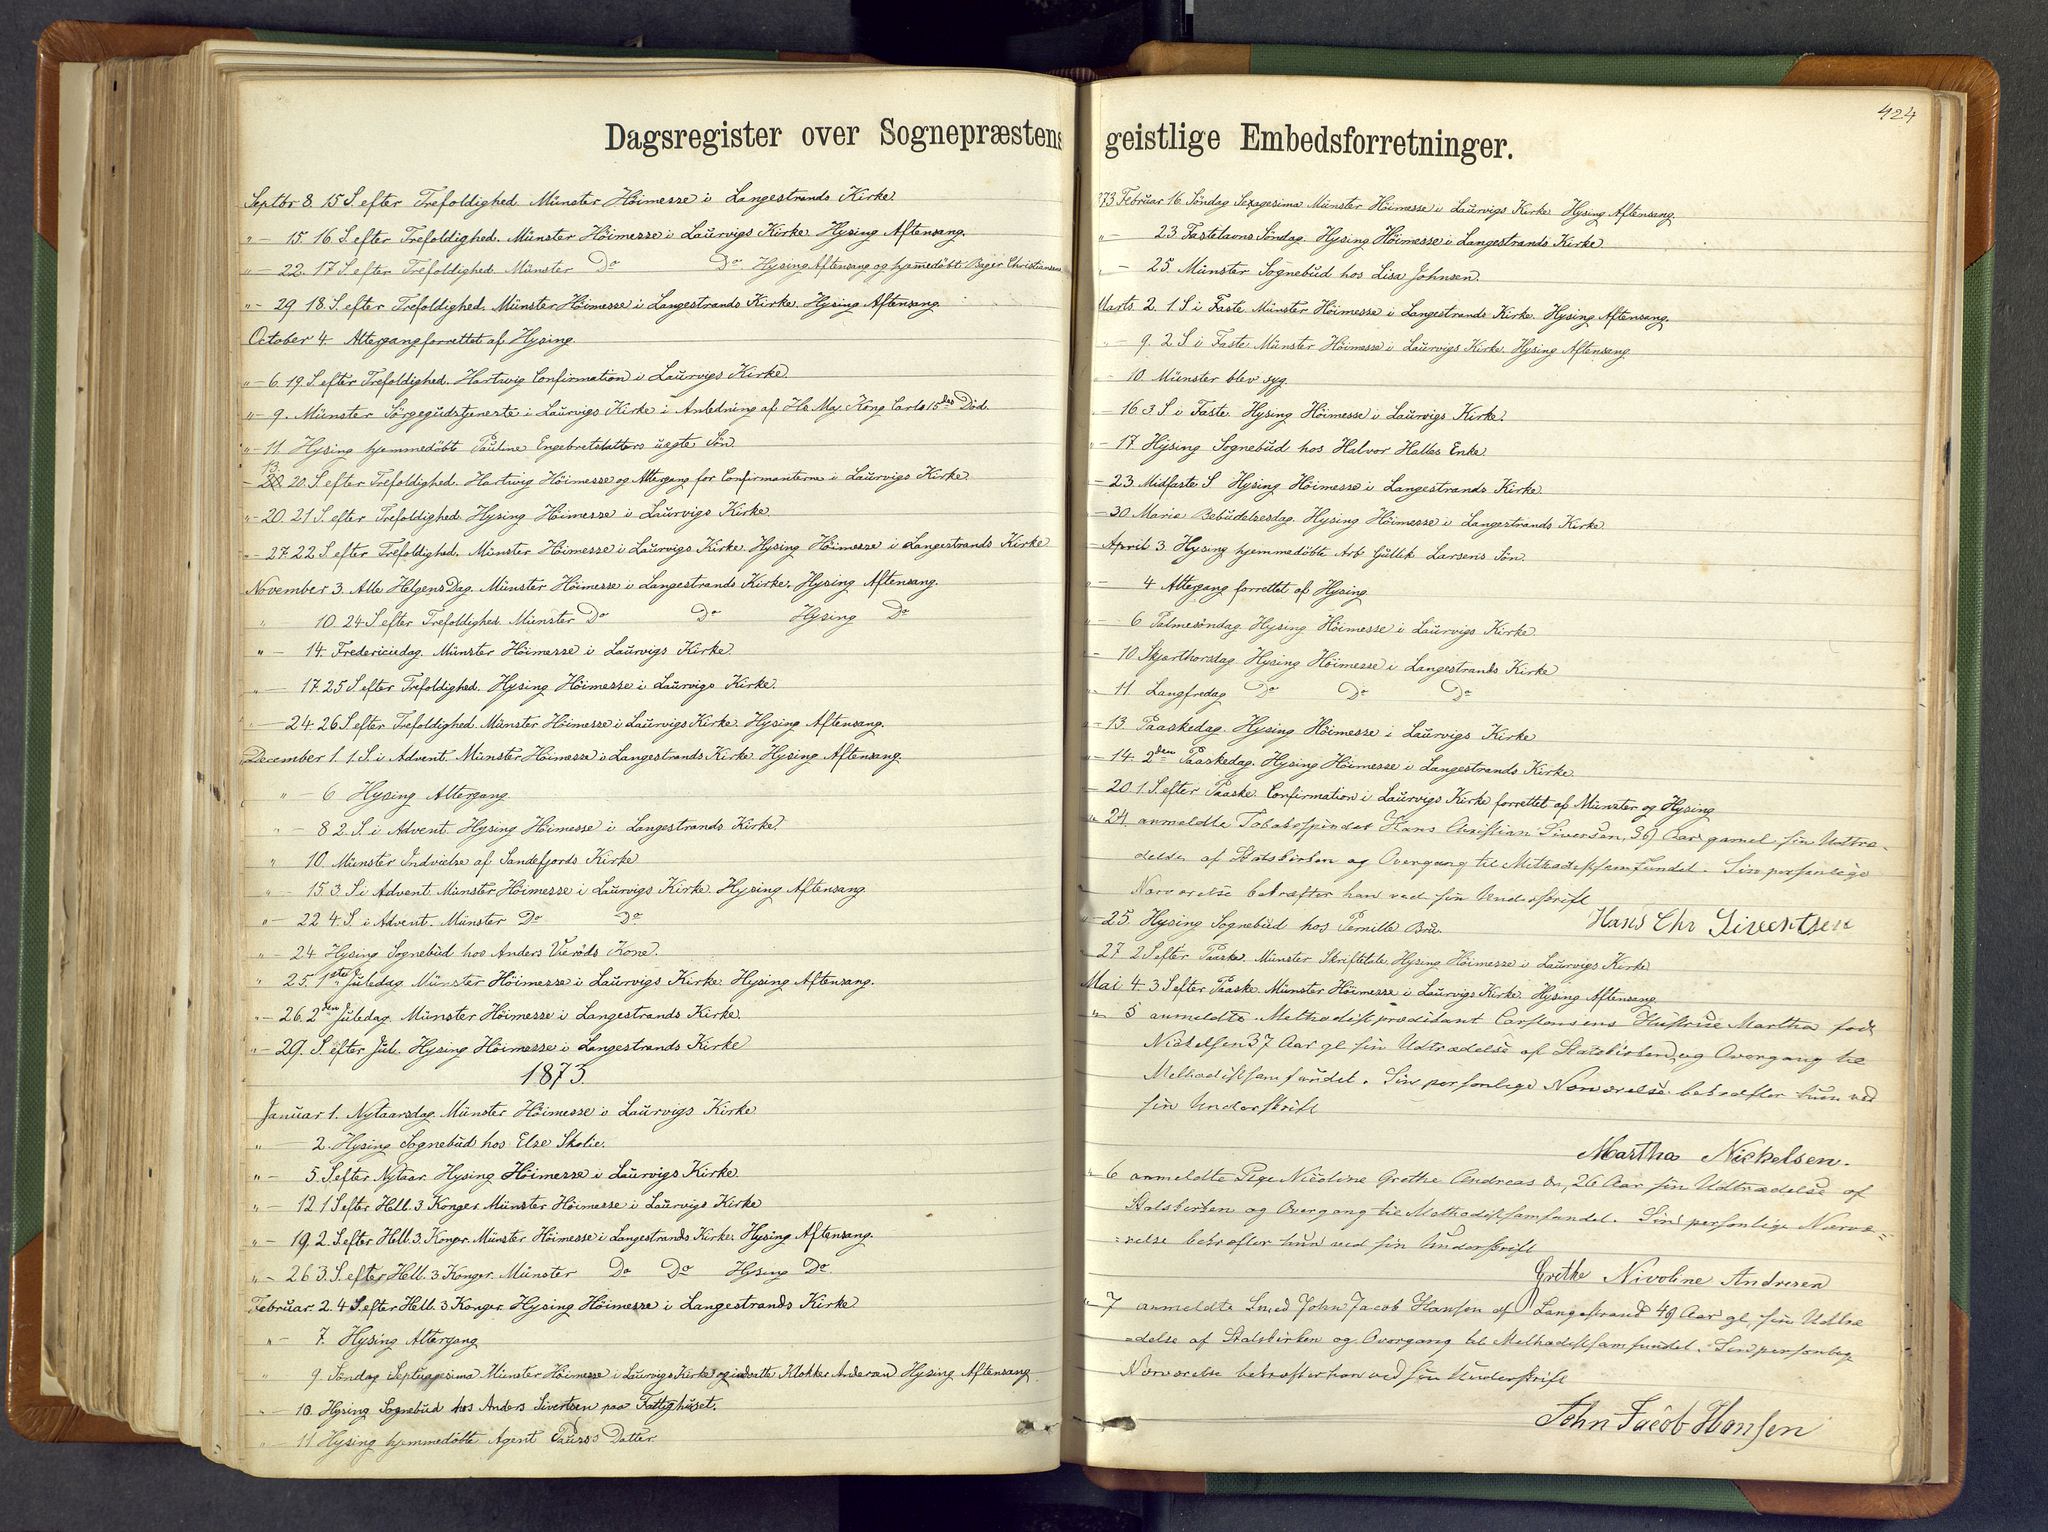 Dagsregister over Sognepræstens
Septbr 8. 15 S. efter Trefoldighed. Münster Höimesse i Langestrands Kirke.
" — 15. 16. S. efter Trefoldighed. Münster Höimesse i Laurvigs Kirke. Hysing Aftensang.
" — 22. 17 S. efter Trefoldighed. Münster Do Do Hysing Aftensang og hjemmedöbt. Bager Christiansens
" — 29 18. S. efter Trefoldighed. Münster Höimesse i Langestrands Kirke. Hysing Aftensang
October 4. Altergang forrettet af Hysing.
" — 6. 19. S. efter Trefoldighed. Hartwig Confirmation i Laurvigs Kirke.
" — 9. Münster Sörgegudstjeneste i Laurvigs Kirke i Anledning af Hs. Maj. Kong Carls 15des Död.
" — 11. Hysing hjemmedöbte Pauline Engebretsdatters uægte Sön
— 13. 20. S. efter Trefoldighed. Hartwig Höimesse og Altergang for Confirmanterne i Laurvigs Kirke
" — 20. 21 S. efter Trefoldighed. Hysing Höimesse i Laurvigs Kirke.
" — 27. 22 S. efter Trefoldighed. Münster Höimesse i Laurvigs Kirke. Hysing Höimesse i Langestrands Kirke
November 3. Alle Helgens Dag. Münster Höimesse i Langestrands Kirke. Hysing Aftensang.
" 10. 24 S. efter Trefoldighed. Münster Do Do Hysing Do
" — 14. Fredericiedag. Münster Höimesse i Laurvigs Kirke.
" — 17. 25 S. efter Trefoldighed. Hysing Höimesse i Laurvigs Kirke.
" — 24. 26 S. efter Trefoldighed. Münster Höimesse i Laurvigs Kirke. Hysing Aftensang.
December 1. 1. S. i Advent. Münster Höimesse i Langestrands Kirke. Hysing Aftensang.
" — 6 Hysing Altergang.
" — 8 2. S. i Advent. Hysing Höimesse i Langestrands Kirke.
" — 10. Münster Indvielse af Sandefjords Kirke
" — 15 3. S. i Advent. Münster Höimesse i Laurvigs Kirke. Hysing Aftensang.
" — 22 4. S. i Advent. Münster Do Do
— 24. Hysing Sognebud hos Anders Vieröds Kone.
" 25. 1ste Juledag. Münster Höimesse i Laurvigs Kirke. Hysing Aftensang.
" — 26. 2den Juledag. Münster Höimesse i Langestrands Kirke.
" — 29. S. efter Jul. Hysing Höimesse i Langestrands Kirke
1873.
Januar 1. Nytaarsdag. Münster Höimesse i Laurvigs Kirke
" — 2. Hysing Sognebud hos Else Skolie.
" — 5. S. efter Nytaar. Hysing Höimesse i Laurvigs Kirke.
" — 12. 1 S. efter Hell. 3 Konger. Münster Höimesse i Laurvigs Kirke
" — 19. 2. S. efter Hell. 3 Konger. Münster Höimesse i Langestrands Kirke. Hysing Aftensang.
" — 26 3. S. efter Hell. 3 Konger. Münster Do Do Hysing Do.
Februar. 2. 4 S. efter Hell. 3 Konger. Hysing Höimesse i Langestrands Kirke
" — 7. Hysing Altergang
" 9. Söndag Septuagesima Münster Höimesse i Laurvigs Kirke og indsatte Klokker Andersen Hysing Aftensang.
" — 10. Hysing Sognebud hos Anders Sivertsen paa Fattighuset.
" — 11 Hysing hjemmedöbte Agent Datter.
424
geistlige Embedsforretninger.
873 Februar 16. Söndag Sexagesima Münster Höimesse i Laurvigs Kirke. Hysing Aftensang.
" — 23. Fastelavns Söndag. Hysing Höimesse i Langestrands Kirke
" — 25. Münster Sognebud hos Lisa Johnsen.
Marts 2. 1. S. i Faste Münster Höimesse i Langestrands Kirke. Hysing Aftensang.
" — 9. 2 S. i Faste. Münster Höimesse i Laurvigs Kirke. Hysing Aftensang.
— 10 Münster blev syg.
" — 16 3. S. i Faste. Hysing Höimesse i Laurvigs Kirke.
" — 17 Hysing Sognebud hos Halvor Halles Enke
— 23. Midfaste S. Hysing Höimesse i Langestrands Kirke.
— 30. Mariæ Bebudelsesdag. Hysing Höimesse i Langestrands Kirke
April 3. Hysing hjemmedöbte Arb. Gullik Larsens Sön.
" — 4 Altergang forrettet af Hysing
" — 6 Palmesöndag. Hysing Höimesse i Laurvigs Kirke
" — 10 Skjærthorsdag Hysing Höimesse i Langestrands Kirke
" — 11. Langfredag Do Do Do
" — 13. Paaskedag. Hysing Höimesse i Laurvigs Kirke
" — 14. 2den Paaskedag. Hysing Höimesse i Langestrands Kirke.
— 20. 1. S. efter Paaske. Confirmation i Laurvigs Kirke forrettet af Münster og Hysing
" 24. anmeldte Tobaksspinder Hans Christian Siversen, 36 Aar gamel sin Udtræ-
delse af Statskirken og Overgang til Methodistsamfundet. Sin personlige
Nærværelse bekræfter han ved sin Underskrift
Hans Chr Siverttsen
" — 25. Hysing Sognebud hos Pernille Bru.
— 27. 2 S. efter Paaske. Münster Skriftetale, Hysing Höimesse i Laurvigs Kirke
Mai 4. 3 S. efter Paaske. Münster Höimesse i Laurvigs Kirke. Hysing Aftensang.
" 5 anmeldte Methodistprædikant Carstensens Hustrue Martha fød
Nickelsen 37 Aar gl sin Udtrædelse af Statskirken, og Overgang til
Methodistsamfundet. Sin personlige Nærværelse bekræfter hun ved
sin Underskrift
Martha Nickelsen.
" 6 anmeldte Pige Nicoline Grethe Andreas D., 26 Aar sin Udtrædelse af
Statskirken og Overgang til Methodistsamfundet. Sin personlige Nærvæ=
=relse bekræfter hun ved sin Underskrift
Grethe Nivoline Andresen
" 7 anmeldte Smed John Jacob Hansen af Langestrand 49 Aar gl. sin Udtræ
=delse af Statskirken og Overgang til Methodistsamfundet. Sin personlig
Nærværelse bekræfter han ved sin Underskrift
John Jacob Hansen